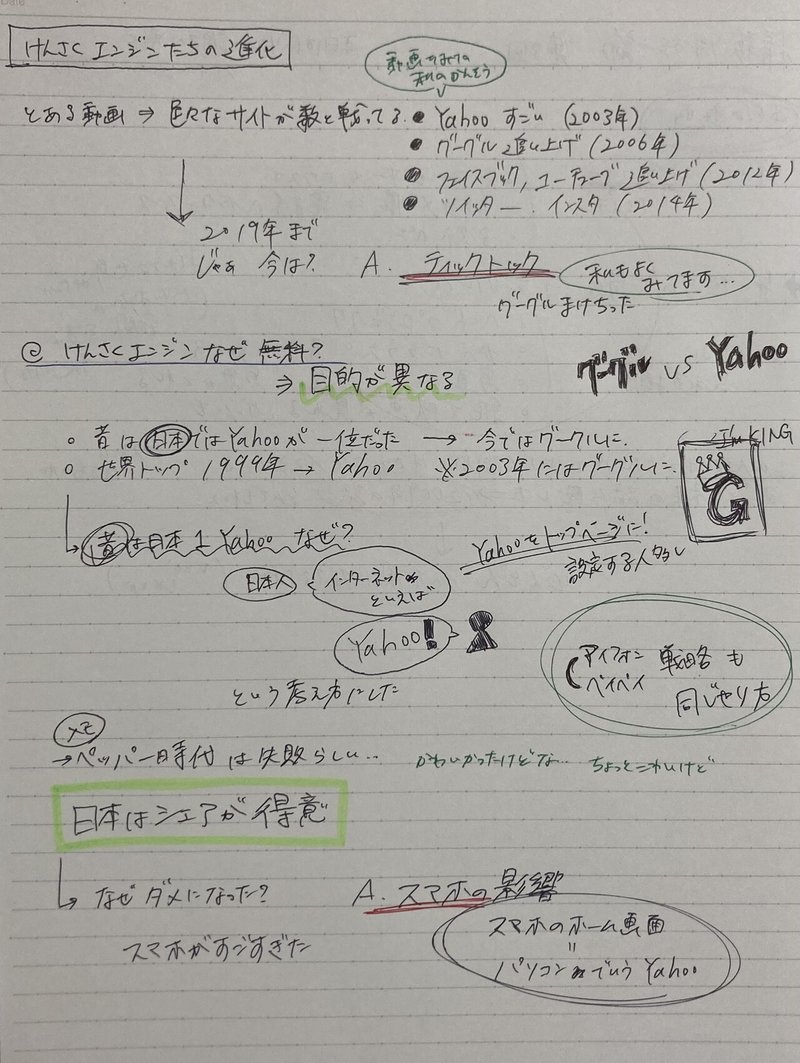 けんさくエンジンたちの進化
動画をみての
私のかんそう
とある動画 ⇒ 色々なサイトが数と戦ってる
● Yahoo すごい (2003年)
● グーグル 追い上げ (2006年)
● フェイスブック, ユーチューブ 追い上げ (2012年)
● ツイッター. インスタ (2014年)
2019年まで
じゃあ 今は?
A. ティックトック
私もよく
みてます…
グーグルまけちった
@ けんさくエンジン なぜ 無料?
⇒ 目的が異なる
グーグル vs Yahoo
○ 昔は日本ではYahooが一位だった → 今ではグーグルに.
○ 世界トップ 1999年 → Yahoo ※2003年にはグーグルに.
I'm KING
G
昔は日本1 Yahoo なぜ?
Yahooをトップページに!
設定する人多い
日本人
インターネット
といえば
Yahoo!
という考え方にした
アイフォン
ペイペイ
戦略も
同じやり方
メモ
→ペッパー時代は失敗らしい.. かわいかったけどな… ちょっとこわいけど
日本はシェアが得意
なぜダメになった?
A. スマホの影響
スマホがすごすぎた
スマホのホーム画面
=
パソコンでいう Yahoo